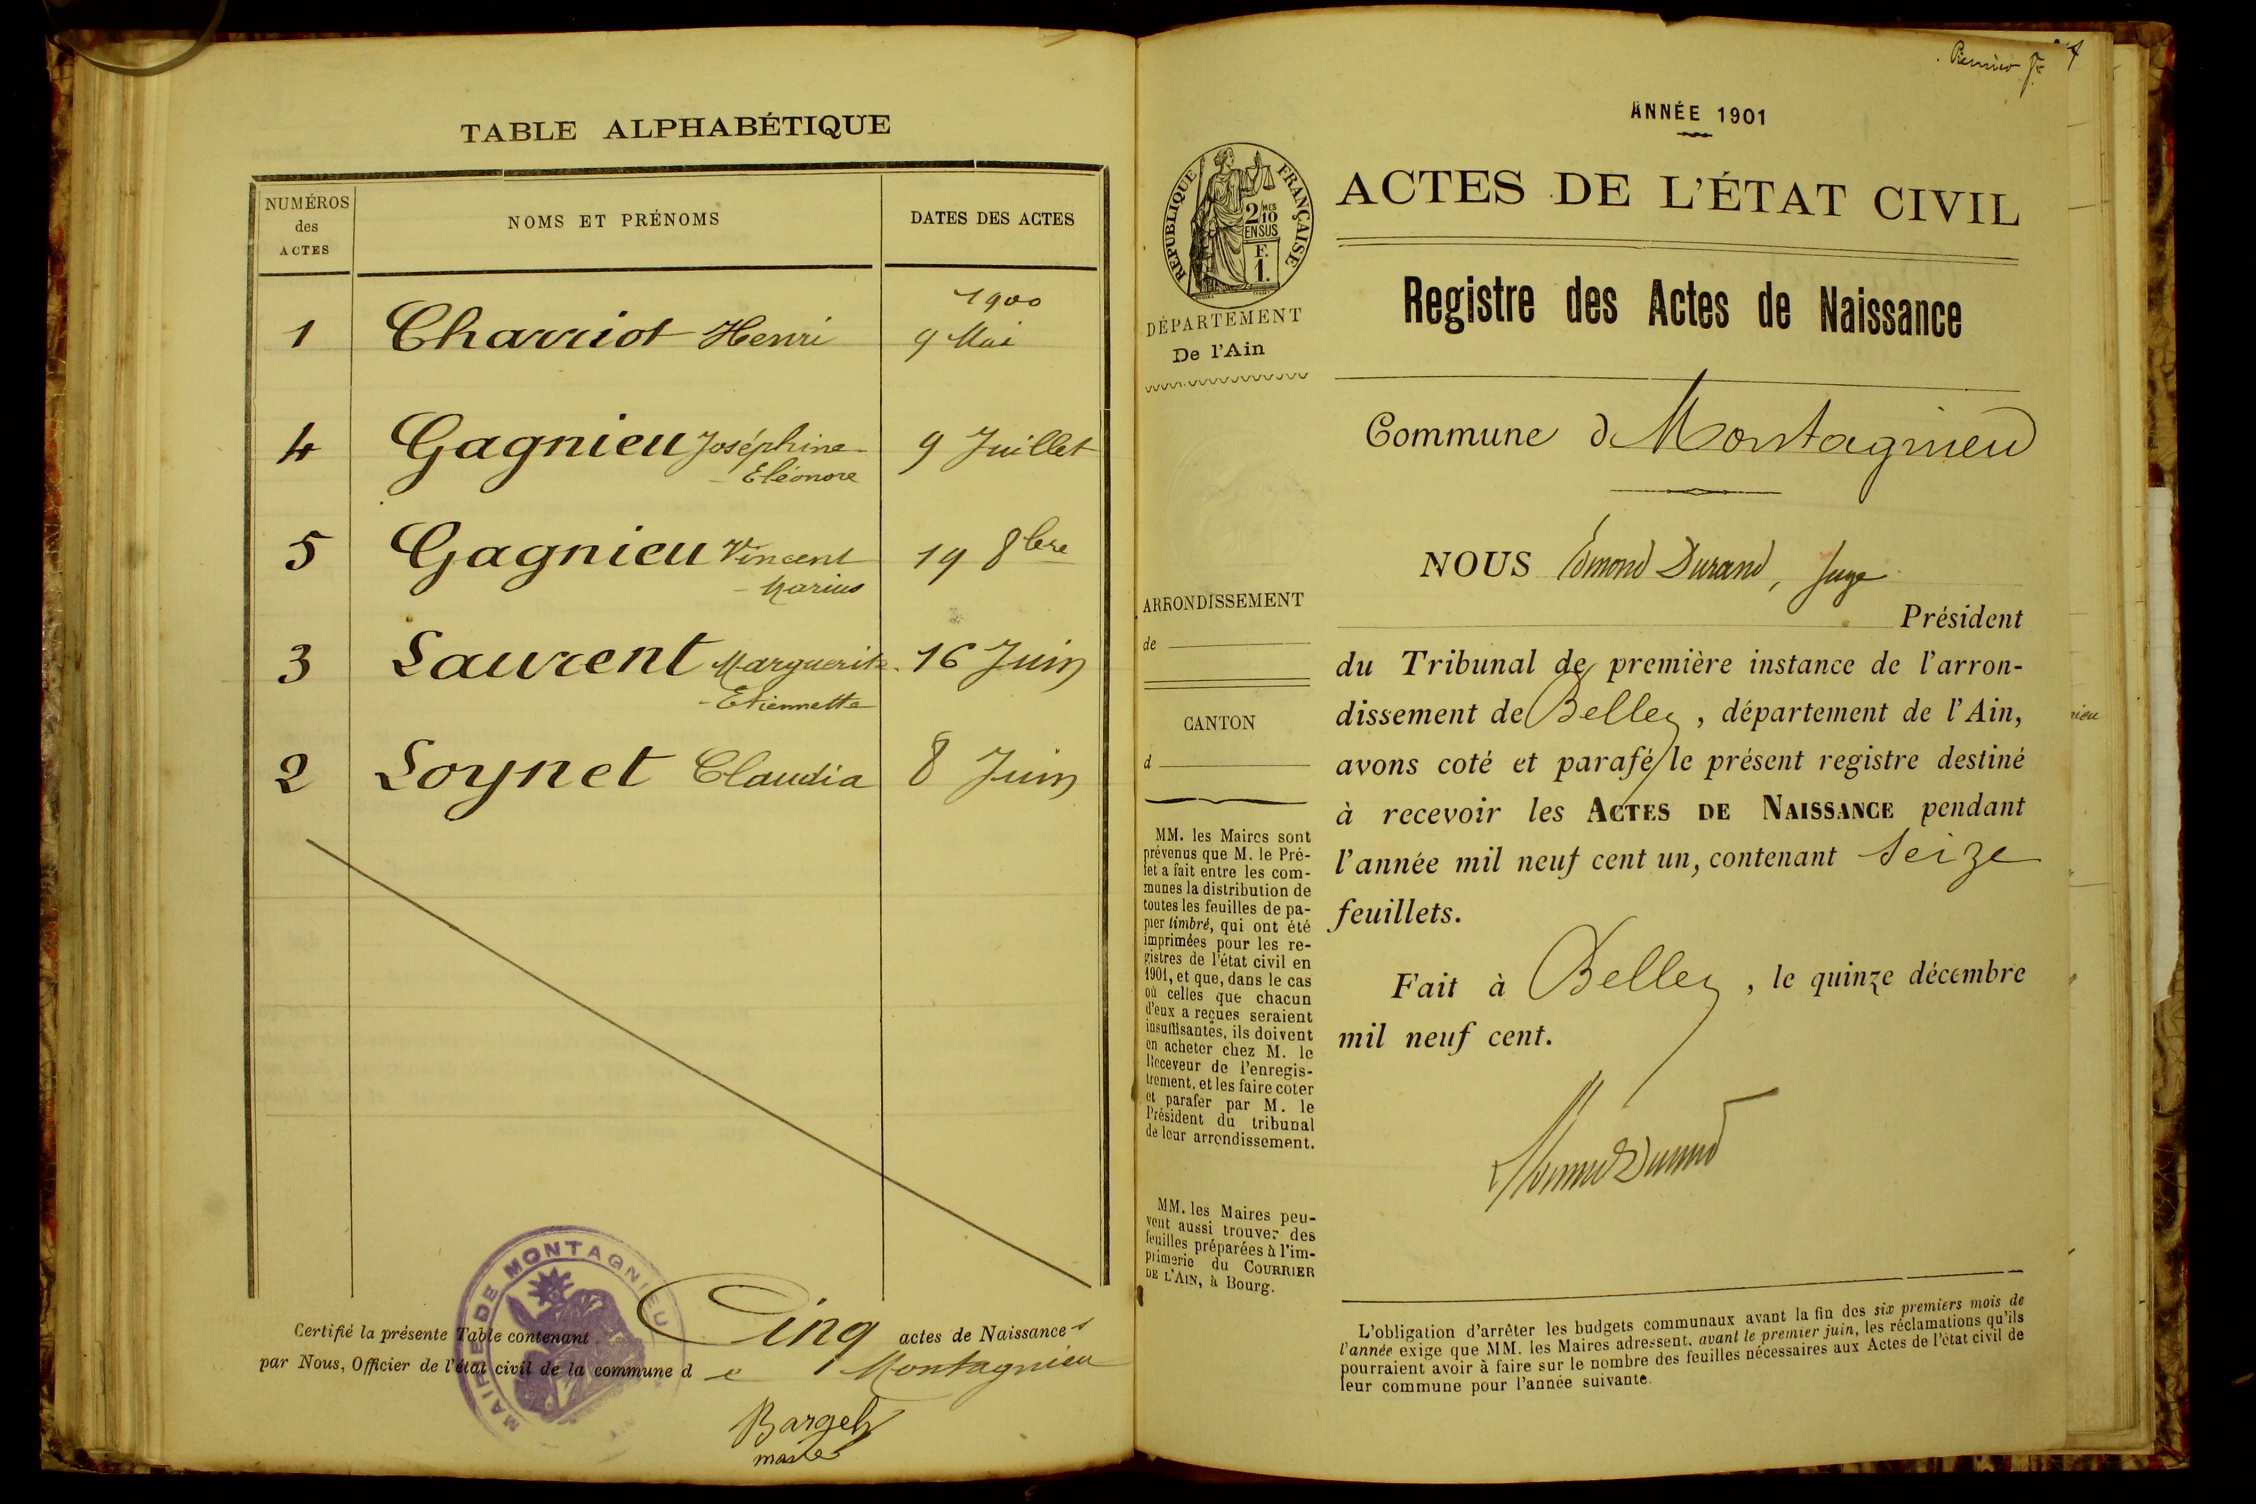 TABLE ALPHABÉTIQUE
NUMÉROS
des
ACTES
NOMS ET PRÉNOMS
DATES DES ACTES
1900
1 Charriot Henri 9 Mai
4 Gagnieu Joséphine 9 Juillet
- Eléonore
5 Gagnieu Vincent 19 8bre
- Marius
3 Laurent Marguerite 16 Juin
- Etiennette
2 Loynet Claudia 8 Juin
MAIRIE DE MONTAGNIEU
Certifié la présente Table contenant Cinq actes de Naissances
par Nous, Officier de l'état civil de la commune de Montagnieu
maire
Premier
ANNÉE 1901
RÉPUBLIQUE FRANÇAISE
2/10
EN SUS
F.
1.
DÉPARTEMENT
De l'Ain
ARRONDISSEMENT
de
CANTON
d
MM. les Maires sont
prévenus que M. le Pré-
fet a fait entre les com-
munes la distribution de
toutes les feuilles de pa-
pier timbré, qui ont été
imprimées pour les re-
gistres de l'état civil en
1901, et que, dans le cas
où celles que chacun
d'eux a reçues seraient
insuffisantes, ils doivent
en acheter chez M. le
Receveur de l'enregis-
trement, et les faire coter
et parafer par M. le
Président du tribunal
de leur arrondissement.
MM. les Maires peu-
vent aussi trouver des
feuilles préparées à l'im-
primerie du COURRIER
DE L'AIN, à Bourg.
ACTES DE L'ÉTAT CIVIL
Registre des Actes de Naissance
Commune d Montagnieu
NOUS Edmond Durand, Juge
Président
du Tribunal de première instance de l'arron-
dissement de Belley, département de l'Ain,
avons coté et parafé le présent registre destiné
à recevoir les ACTES DE NAISSANCE pendant
l'année mil neuf cent un, contenant seize
feuillets.
Fait à Belley, le quinze décembre
mil neuf cent.
Edmond Durand
L'obligation d'arrêter les budgets communaux avant la fin des six premiers mois de
l'année exige que MM. les Maires adressent, avant le premier juin, les réclamations qu'ils
pourraient avoir à faire sur le nombre des feuilles nécessaires aux Actes de l'état civil de
leur commune pour l'année suivante.